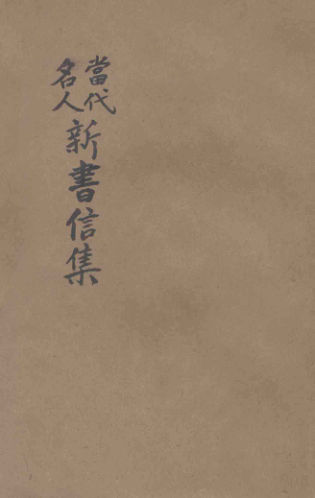 當代
名人
新書信集